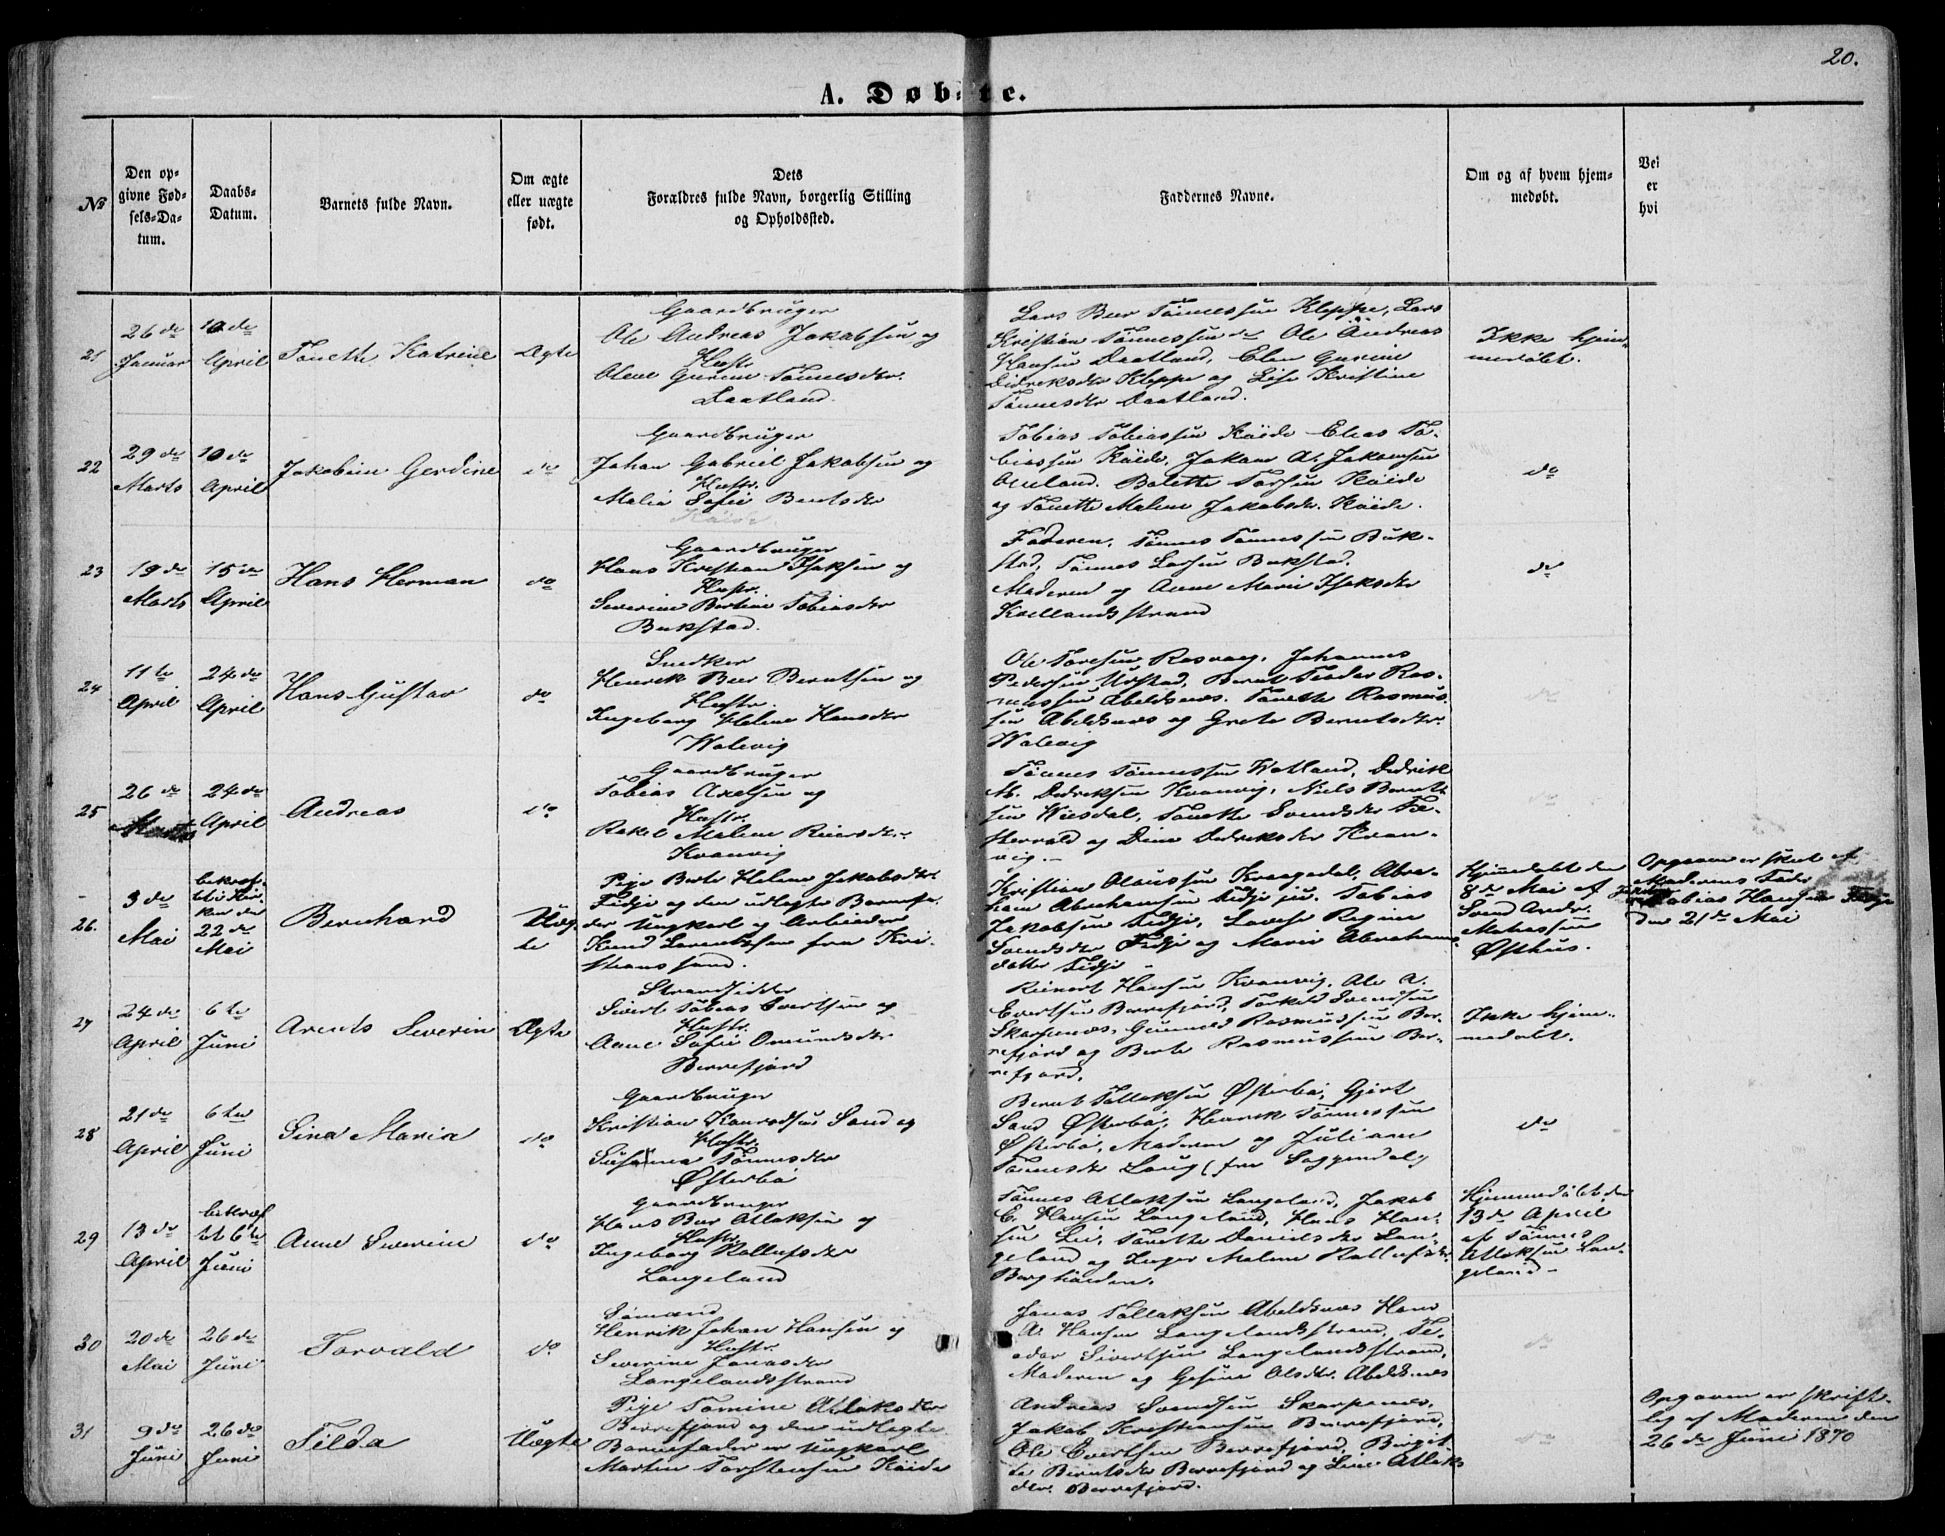 20.
A. Døbte.
№
Den op-
givne Fød-
sels-Da-
tum.
Daabs-
Datum.
Barnets fulde Navn.
Om ægte
eller uægte
født.
Dets
Forældres fulde Navn, borgerlig Stilling
og Opholdssted.
Faddernes Navne.
Om og af hvem hjem-
medøbt.
Vei
er
hvi
21
26de
Januar
10de
April
Tonette Katrine
Ægte
Gaardbruger
Ole Andreas Jakobsen og
Hustr.
Olene Gurine Tønnesdtr.
Daatland.
Lars Beer Tønnessen Kleppe, Lars
Kristian Tønnessen do Ole Andreas
Hansen Daatland, Elen Gurine
Didriksdtr Kleppe og Lise Kristine
Tønnesdtr Daatland.
Ikke hjem-
medøbt.
22
29de
Marts
10de
April
Jakobine Gerdine
do
Gaardbruger
Johan Gabriel Jakobsen og
Hustr.
Malia Sofie Berntsdtr
Køide.
Tobias Tobiassen Køide Elias To-
biassen Køide, Jakob A. Jakobsen
Bolette Torsen Køide
og Tonette Malene Jakobsdtr. Køide.
do
23
19de
Marts
15de
April
Hans Herman
do
Gaardbruger
Hans Kristian Isaksen og
Hustr.
Severine Bertine Tobiasdtr
Bukstad.
Faderen, Tønnes Tønnessen Buk-
stad, Tønnes Larsen Bukstad.
Moderen og Anne Marie Isaksdtr
strand
do
24
11te
April
24de
April
Hans Gustav
do
Snedker
Henrik Beer Berntsen og
Hustr.
Ingeborg Helene Hansdtr
Walevig
Ole Toresen Rosvaag, Johannes
Pedersen Urstad, Bernt Teodor Ras-
mussen Abelsnæs. Tonette Rasmus-
sen Abelsnæs og Grete Berntsdtr
Walevig
do
25
26de
Marts
24de
April
Andreas
do
Gaardbruger
Tobias Axelsen og
Hustr.
Rakel Malene Reiersdtr.
Kvanvig
Tønnes Tønnessen Watland, Didrik
M. Didriksen Kvanvig, Niels Bernt-
sen Wiesdal, Tonette Svendsdtr
og Dine Didriksdtr Kvan-
vig.
do
26.
3de
Mai
bekræf-
tet i Kir-
ken den
22de
Mai
Bernhard
Uæg-
te
Pige Berte Helene Jakobsdtr
Fidje og den udlagte Barnefa-
der Ungkarl og Arbeider
Knud Lorentzsen fra Kri-
stianssand.
Kristian Olaussen Kraagedal, Abra-
ham Abrahamsen Fidje jun. Tobias
Jakobsen Fidje, Lovise Regine
Svendsdtr Fidje og Marie Abrahams-
datter Fidje
Hjemmedøbt den
8de Mai af
Svend Andr.
Matiassen
Østhus.
Opgaven er skeet af
Moderens Fader
Tobias Hansen Fidje
den 21de Mai
27
24de
April
6te
Juni
Arents Severin
Ægte
Strandsidder
Sivert Tobias Evertsen og
Hustr.
Anne Sofie Omundsdtr
Berrefjord
Reinert Hansen Kvanvig, Ole A.
Evertsen Berrefjord, Torkild Svendsen
Skarpenæs, Gunvald Rasmussen Ber-
refjord og Berte Rasmussen Ber-
refjord.
Ikke hjem-
medøbt.
28
21de
April
6te
Juni
Sina Maria
do
Gaardbruger
Kristian Konradsen Sand og
Hustr.
Susanna Tønnesdtr
Østerbø
Bernt Tollaksen Østerbø, Gjert
Sand Østerbø, Henrik Tønnessen
Østerbø, Moderen og Juliane
Tønnesdtr Haug (fra Soggendal)
do
29
13de
April
bekræf-
tet 6te
Juni
Anne Severine
do
Gaardbruger
Hans Beer Atlaksen og
Hustr.
Ingeborg Rollefsdtr
Langeland
Tønnes Atlaksen Langeland, Jakob
C. Hansen Langeland, Hans Han-
sen Lie, Torette Danielsdtr Lan-
geland og Inger Malene Rollefsdtr
Berghøiden.
Hjemmedøbt den
13de April
af Tønnes
Atlaksen Lan-
geland
30
20de
Mai
26de
Juni
Torvald
do
Sømand
Henrik Johan Hansen og
Hustr.
Severine Jonasdtr
Langelandsstrand
Jonas Tollaksen Abelsnæs Hans
A. Hansen Langelandsstrand, Te-
odor Sivertsen Langelandsstrand,
Moderen og Gesine Olsdtr. Abelsnæs
do
31
9de
Juni
26de
Juni
Tilda
Uægte
Pige Tomine Atlaksdtr
Berrefjord og den udlagte
Barnefader er Ungkarl
Martin Torstensen Køide
Andreas Svendsen Skarpenæs,
Jakob Kristiansen Berrefjord,
Ole Evertsen Berrefjord, Birgit-
te Berntsdtr Berrefjord og Lene Atlaks
dtr. Berrefjord.
do
Opgaven er skrift-
lig af Moderen den
26de Juni 1870